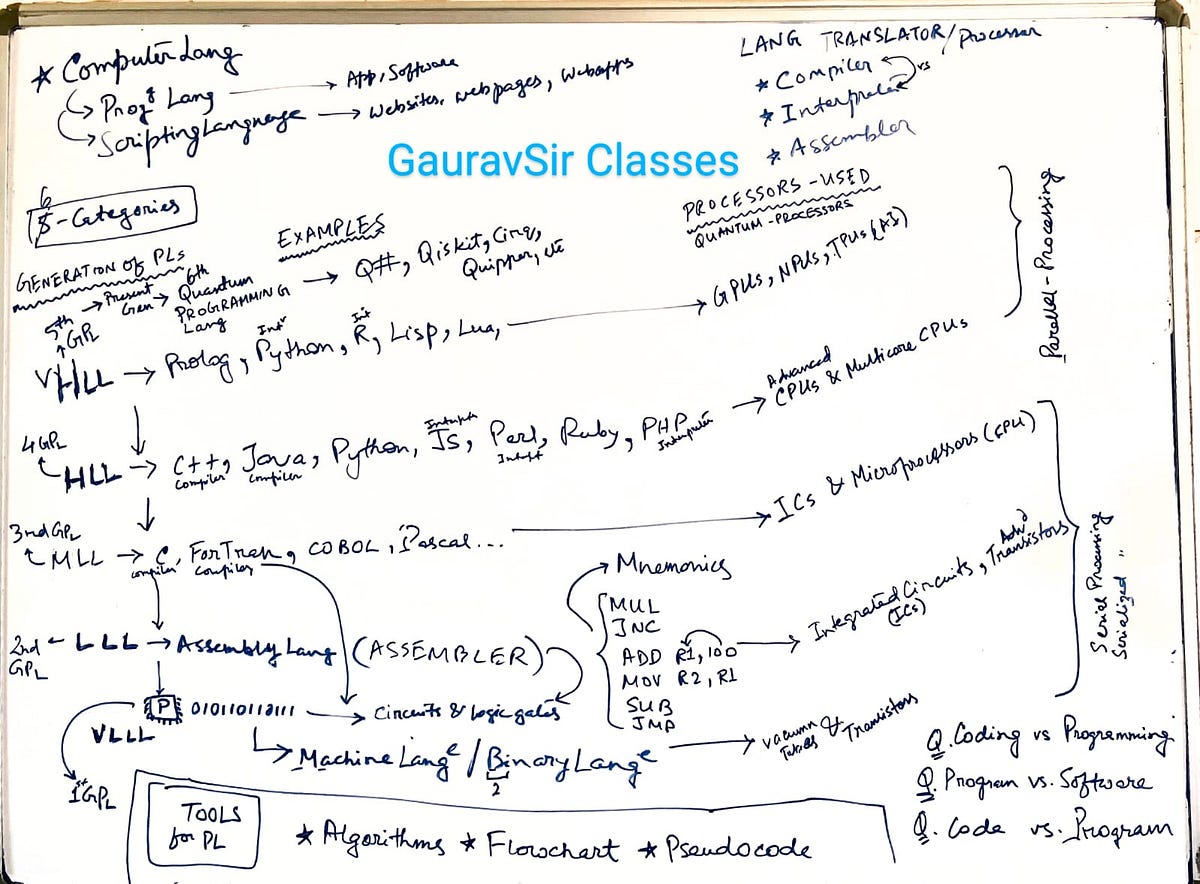 ★ Computer Lang
→ Progᵍ Lang → App, Software
→ Scripting Language → Websites, webpages, Webapps
LANG TRANSLATOR/Processor
★ Compiler
vs
★ Interpreter
★ Assembler
GauravSir Classes
6
5-Categories
GENERATION OF PLs
EXAMPLES
PROCESSORS-USED
5th GPL → Present Gen → 6th Quantum PROGRAMMING Lang → Q#, Qiskit, Cirq, Quipper, etc
QUANTUM-PROCESSORS
VHLL → Prolog, Python, R, Lisp, Lua, → GPUs, NPUs, TPUs (AI)
Int Int
Parallel-Processing
4GPL
HLL → C++, Java, Python, JS, Perl, Ruby, PHP → Advanced CPUs & Multicore CPUs
Compiler Compiler Interpreter
3rd GPL
MLL → C, ForTran, COBOL, Pascal... → ICs & Microprocessors (CPU)
compiler Compiler
2nd GPL ← LLL → Assembly Lang (ASSEMBLER)
Mnemonics
MUL
INC
ADD R1, 100 → Integrated Circuits, Advd Transistors
(ICs)
MOV R2, R1
SUB
JMP
Serial Processing
Serialized "
P 010110112111 → Circuits & logic gates
VLLL
→ Machine Langᵉ / Binary Langᵉ → Vacumn Tubes & Transistors
2
1st GPL
TOOLS
for PL
★ Algorithms ★ Flowchart ★ Pseudocode
Q. Coding vs Programming
Q. Program vs. Software
Q. Code vs. Program